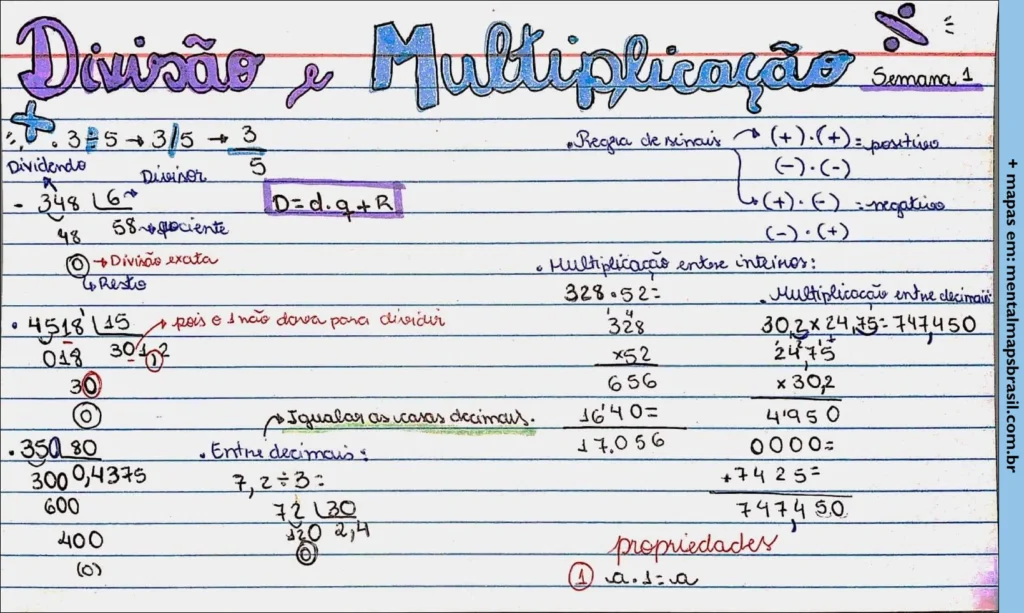 Divisão e Multiplicação
Semana 1
. 3÷5 → 3/5 → 3
5
Dividendo
Divisor
- 348 6
48 58 → quociente
0 → Divisão exata
↳ Resto
D = d.q + R
. 4518 15 → pois o 1 não dava para dividir
018 301,2
30
0
. 350 80
300 0,4375
600
400
(0)
→ Igualar as casas decimais.
. Entre decimais:
7,2 ÷ 3 =
72 30
120 2,4
0
. Regra de sinais → (+).(+) = positivo
(-).(-)
↳ (+).(-) = negativo
(-).(+)
. Multiplicação entre inteiros:
328.52=
328
x52
656
1640=
17.056
. Multiplicação entre decimais:
30,2 x 24,75 = 747,450
24,75
x 30,2
4950
0000=
+7425=
747,450
propriedades
1 a.1=a
+ mapas em: mentalmapsbrasil.com.br